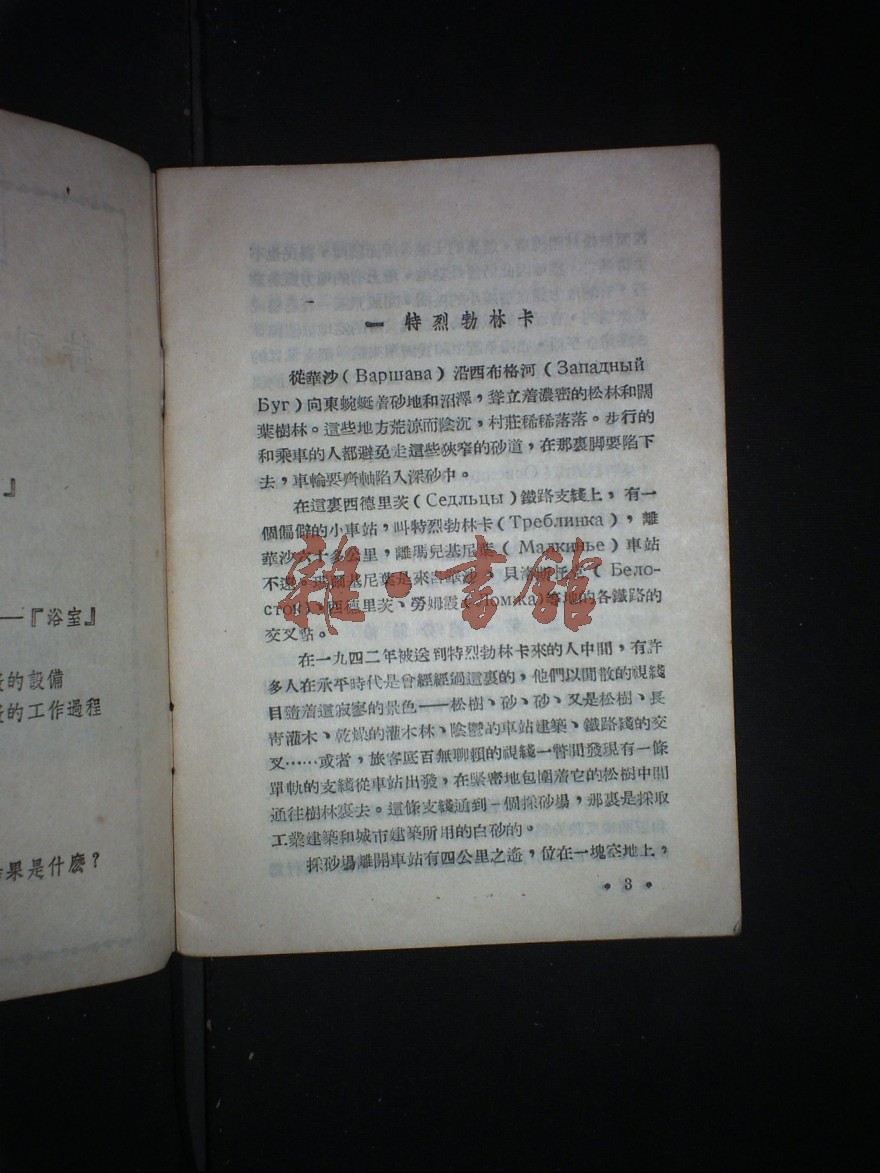 』
——『浴室』
的設備
的工作過程
果是什麽？
一 特烈勃林卡
從華沙（Варшава）沿西布格河（Западный
Буг）向東蜿蜒着砂地和沼澤，聳立着濃密的松林和闊
葉樹林。這些地方荒涼而陰沉，村莊稀稀落落。步行的
和乘車的人都避免走這些狹窄的砂道，在那裏脚要陷下
去，車輪要齊軸陷入深砂中。
在這裏西德里茨（Седльцы）鐵路支綫上，有一
個偏僻的小車站，叫特烈勃林卡（Треблинка），離
華沙六十多公里，離瑪兒基尼葉（Малкинье）車站
不遠。瑪爾基尼葉是來自華沙、貝洛斯托克（Бело-
сток）、西德里茨、勞姆霞（Ломжа）等地的各鐵路的
交叉點。
在一九四二年被送到特烈勃林卡來的人中間，有許
多人在承平時代是會經經過這裏的，他們以閒散的視綫
目隨着這寂寥的景色——松樹、砂、砂、又是松樹、長
靑灌木、乾燥的灌木林、陰鬱的車站建築、鐵路綫的交
叉……或者，旅客底百無聊賴的視綫一瞥間發現有一條
單軌的支綫從車站出發，在緊密地包圍着它的松樹中間
通往樹林裏去。這條支綫通到一個採砂場，那裏是採取
工業建築和城市建築所用的白砂的。
採砂場離開車站有四公里之遙，位在一塊空地上，
• 3 •
雜·書館